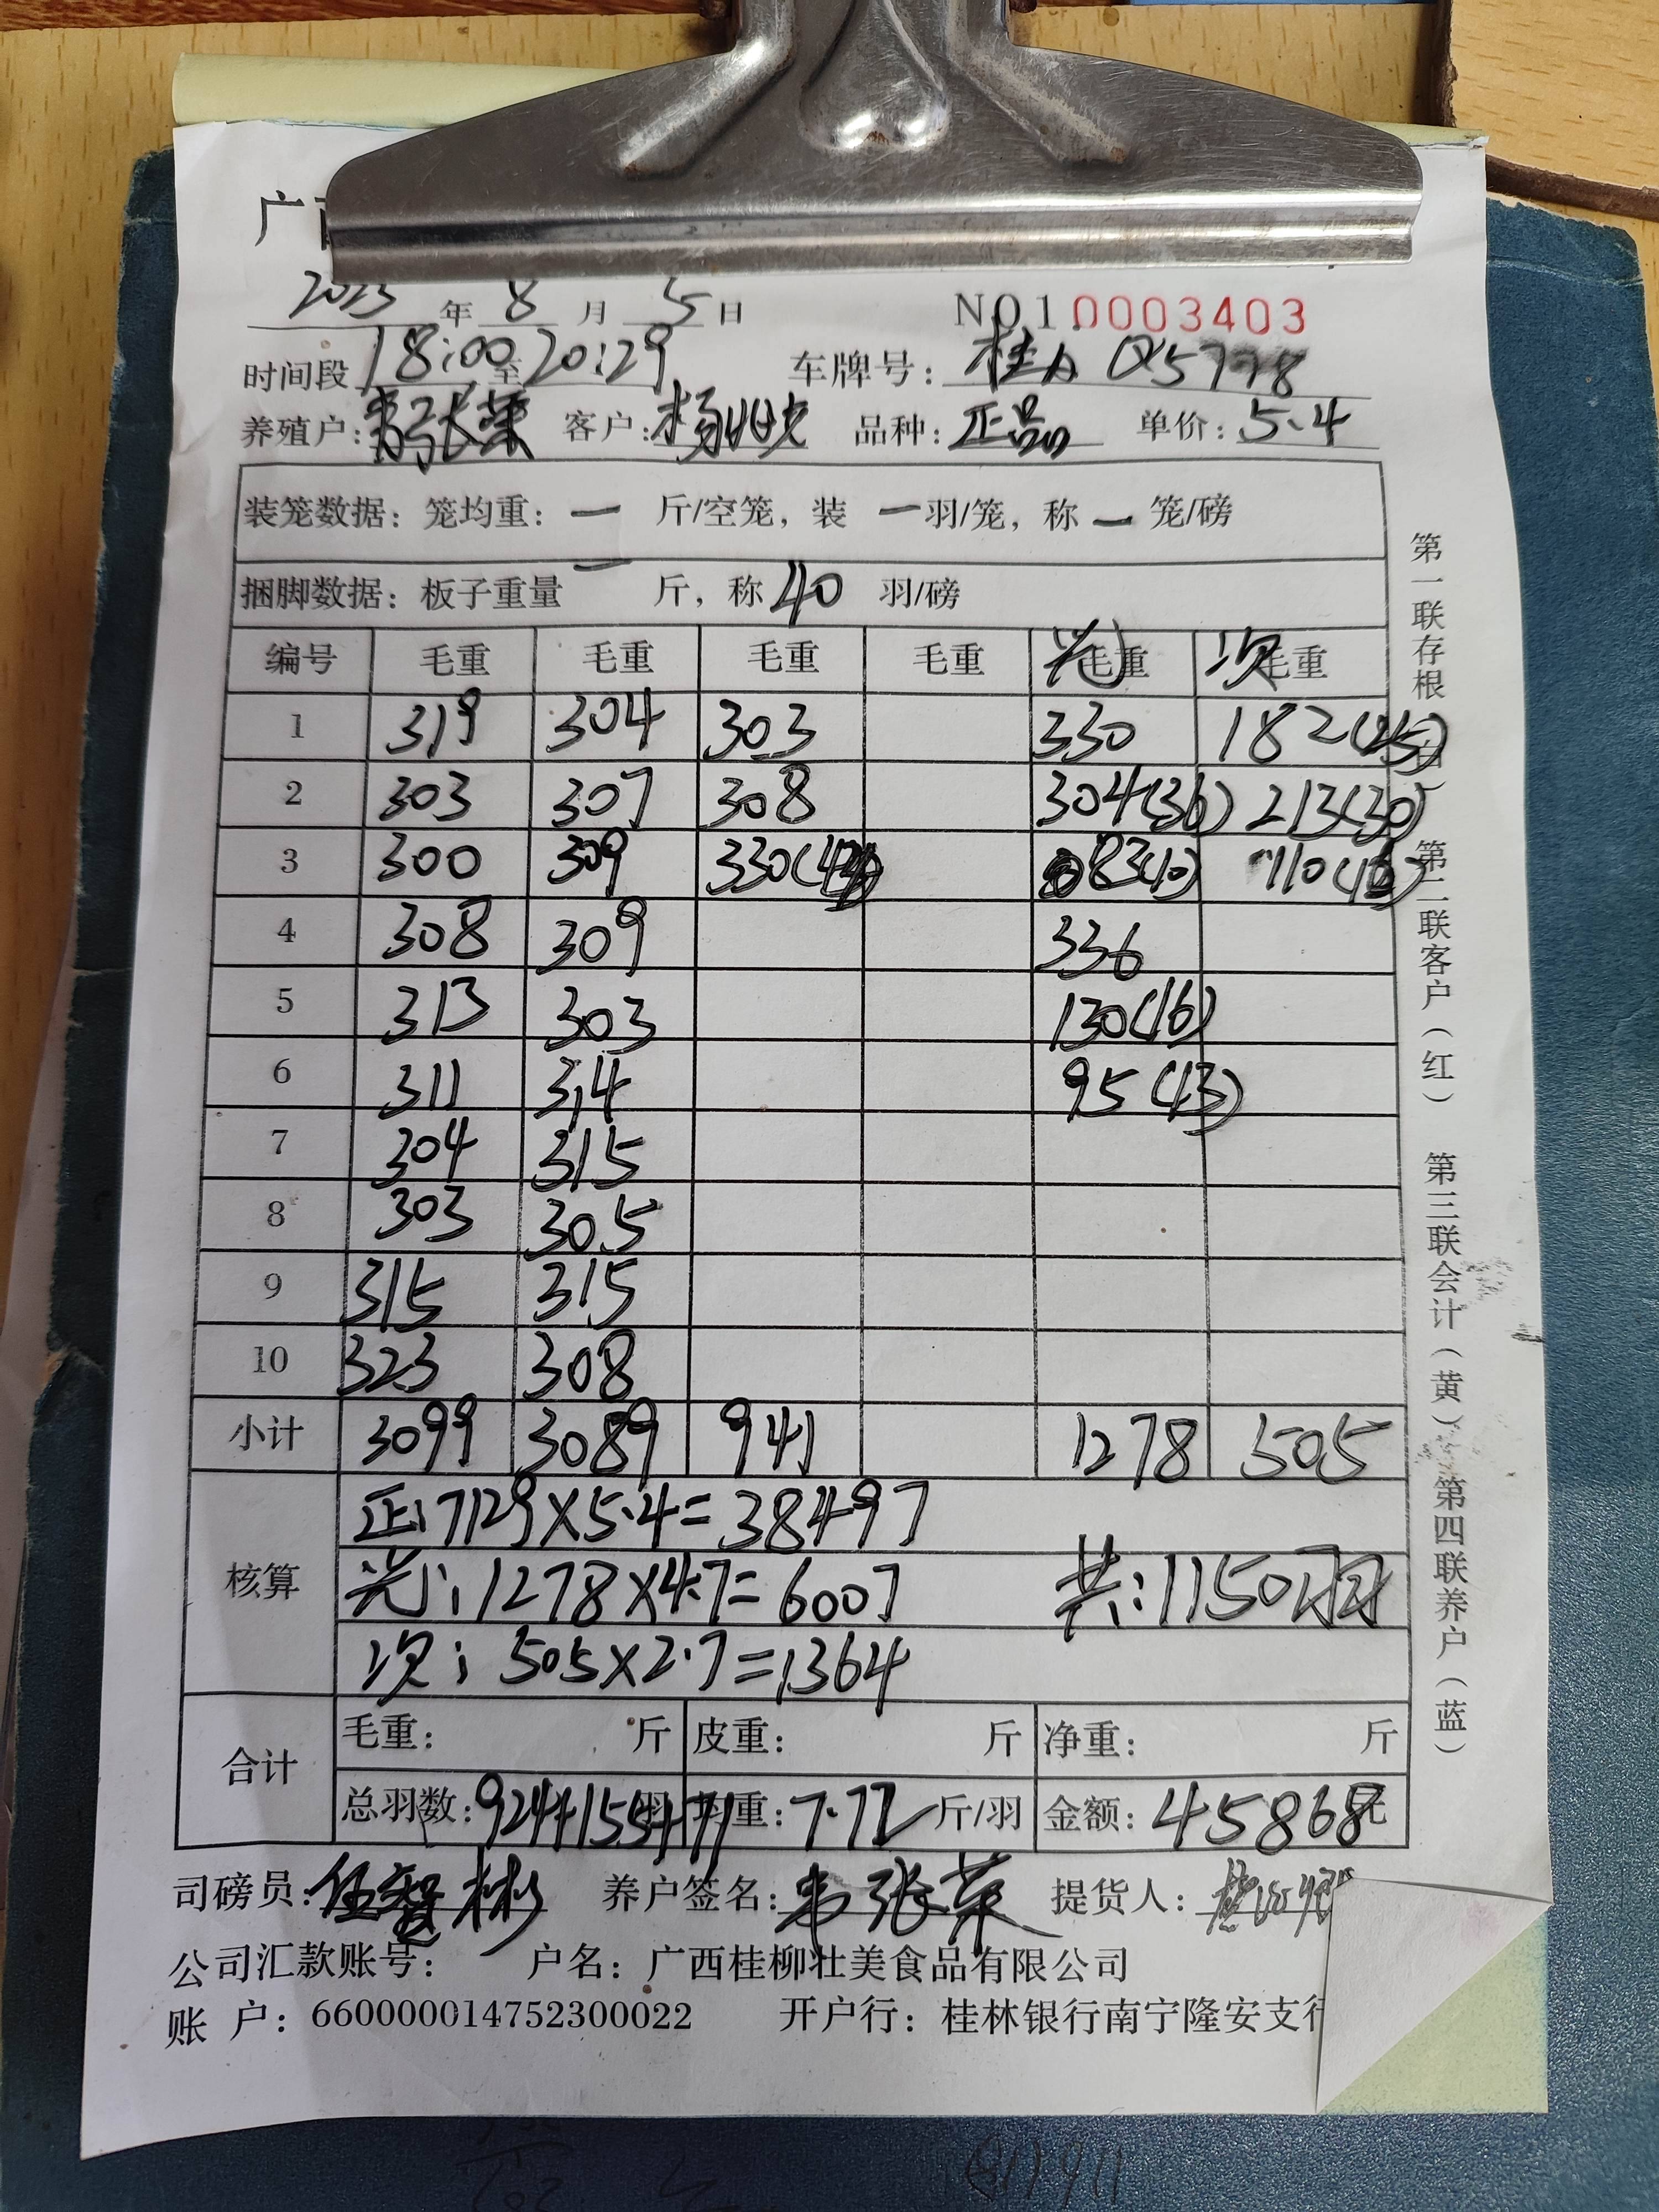 广
2023 年 8 月 5 日 NO1.0003403
时间段 18:00 至 20:29 车牌号: 桂A Q5778
养殖户: 韦张荣 客户: 杨 品种: 正品 单价: 5.4
装笼数据: 笼均重: 一 斤/空笼, 装 一 羽/笼, 称 一 笼/磅
捆脚数据: 板子重量 一 斤, 称 40 羽/磅
编号 毛重 毛重 毛重 毛重 光 毛重 次 毛重
1 319 304 303 330 182(25)
2 303 307 308 304(36) 213(30)
3 300 309 330(44) 83(10) 110(16)
4 308 309 336
5 313 303 130(16)
6 311 314 95(13)
7 304 315
8 303 305
9 315 315
10 323 308
小计 3099 3089 941 1278 505
核算 正: 7129×5.4=38497
光: 1278×4.7=6007 共: 1150羽
次: 505×2.7=1364
合计 毛重: 斤 皮重: 斤 净重: 斤
总羽数: 924+155+71 羽 羽重: 7.72 斤/羽 金额: 45868 元
司磅员: 伍智彬 养户签名: 韦张荣 提货人:
公司汇款账号: 户名: 广西桂柳壮美食品有限公司
账 户: 660000014752300022 开户行: 桂林银行南宁隆安支行
第一联存根(白) 第二联客户(红) 第三联会计(黄) 第四联养户(蓝)